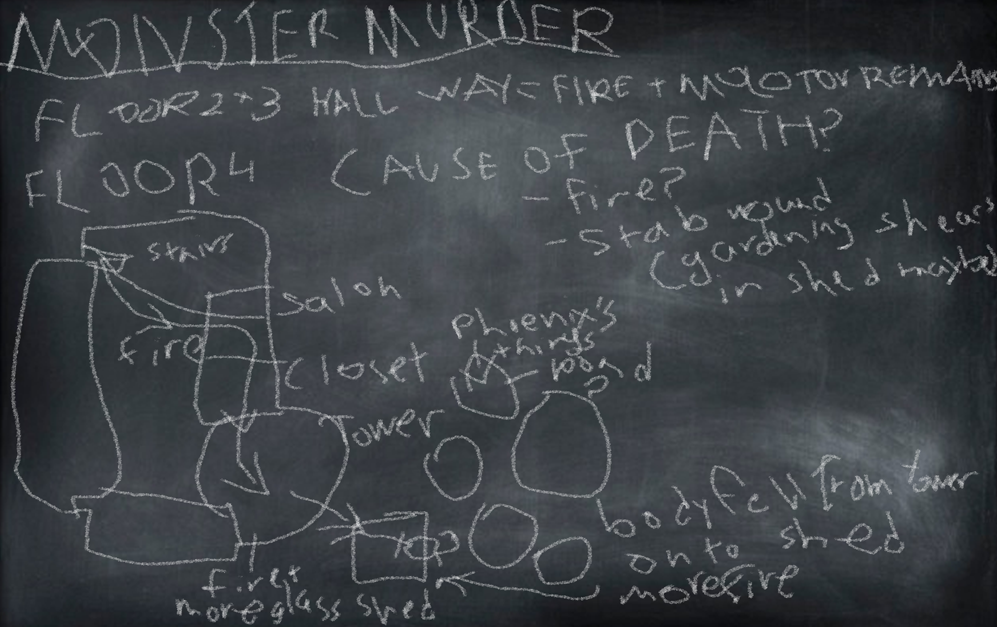 MONSTER MURDER
FLOOR 2+3 HALL WAY = FIRE + MOLOTOV REMAINS
FLOOR 4
CAUSE OF DEATH?
- Fire?
- Stab wound
(gardening shears
in shed maybe)
stairs
salon
fire
closet
Phienix's
things
pond
?
Tower
top
body fell from tower
onto shed
more fire
fire +
more glass shed